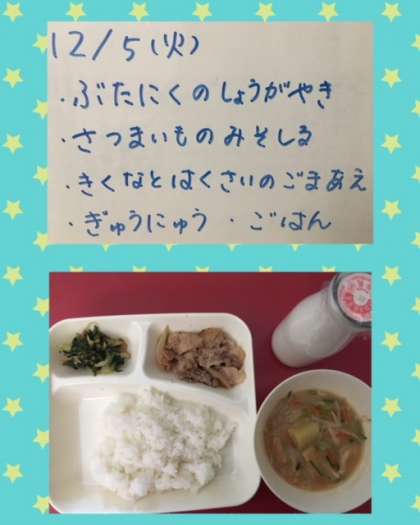 12/5(火)
・ぶたにくのしょうがやき
・さつまいものみそしる
・きくなとはくさいのごまあえ
・ぎゅうにゅう ・ごはん